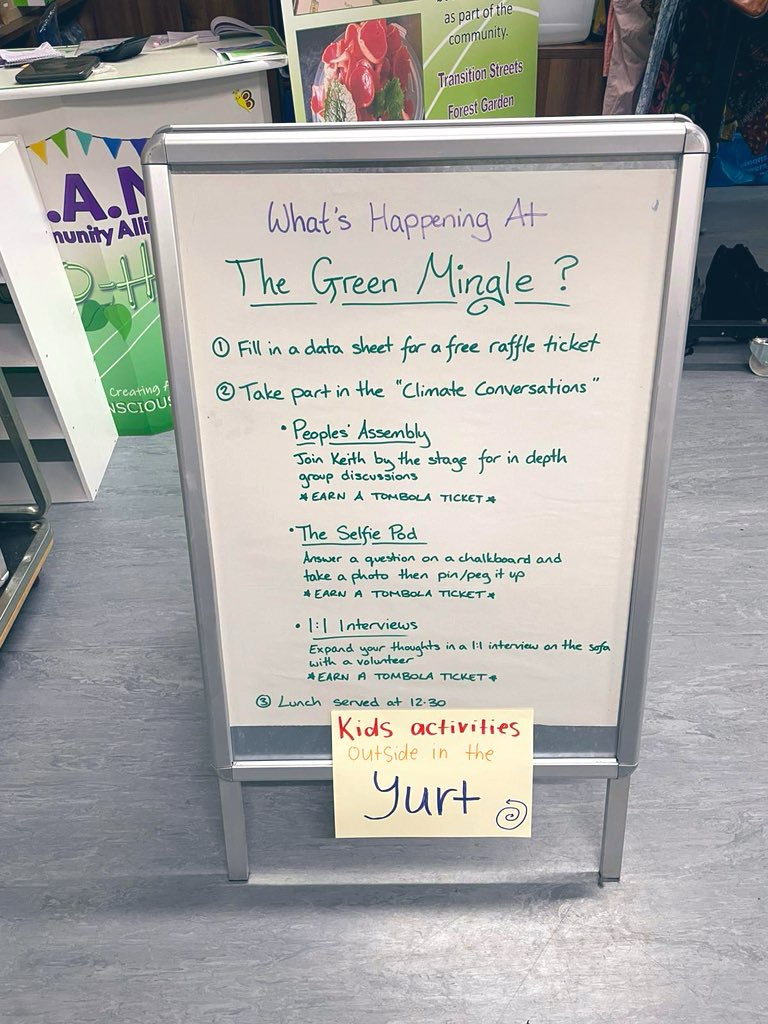 as part of the
community.
Transition Streets
Forest Garden
What's Happening At
The Green Mingle ?
① Fill in a data sheet for a free raffle ticket
② Take part in the "Climate Conversations"
• Peoples' Assembly
Join Keith by the stage for in depth
group discussions
*EARN A TOMBOLA TICKET*
• The Selfie Pod
Answer a question on a chalkboard and
take a photo then pin/peg it up
*EARN A TOMBOLA TICKET*
• 1:1 Interviews
Expand your thoughts in a 1:1 interview on the sofa
with a volunteer
*EARN A TOMBOLA TICKET*
③ Lunch served at 12.30
Kids activities
outside in the
yurt
Creating